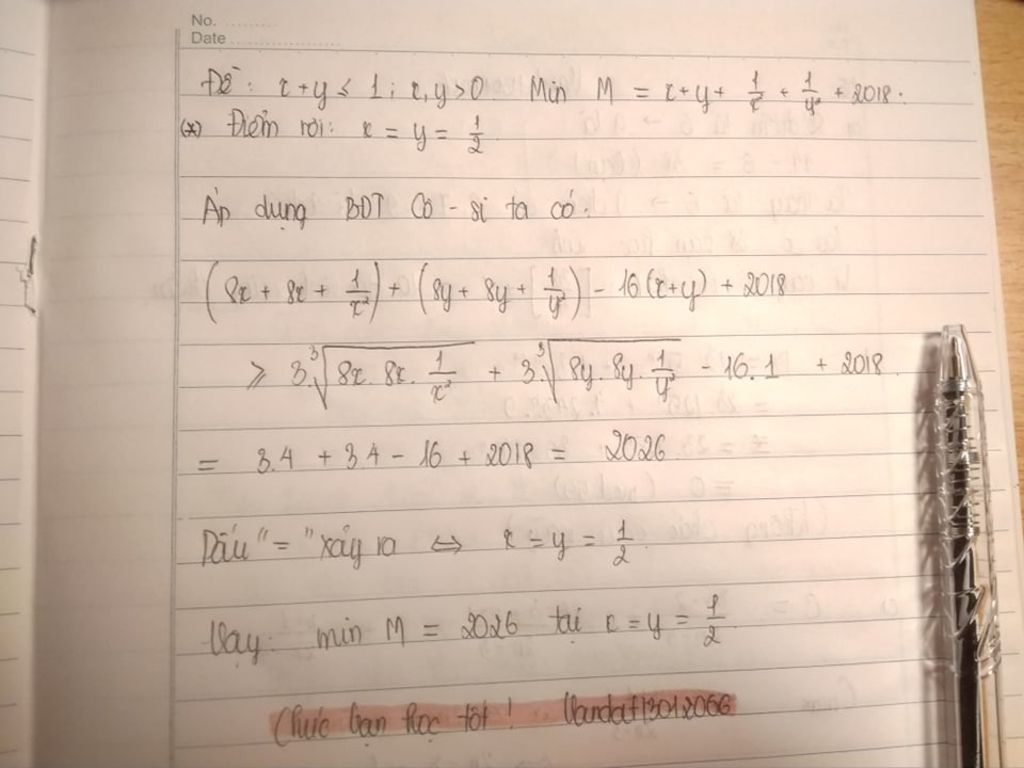 No. ............
Date ......................
Đề: x + y ≤ 1 ; x, y > 0. Min M = x + y + 1/x² + 1/y² + 2018.
(*) Điểm rơi: x = y = 1/2
Áp dụng BĐT Cô - si ta có:
(8x + 8x + 1/x²) + (8y + 8y + 1/y²) - 16(x+y) + 2018
≥ 3.∛(8x. 8x. 1/x²) + 3.∛(8y. 8y. 1/y²) - 16.1 + 2018.
= 3.4 + 3.4 - 16 + 2018 = 2026
Dấu "=" xảy ra ⇔ x = y = 1/2.
Vậy: min M = 2026 tại x = y = 1/2
Chúc bạn học tốt ! Vandat13012006